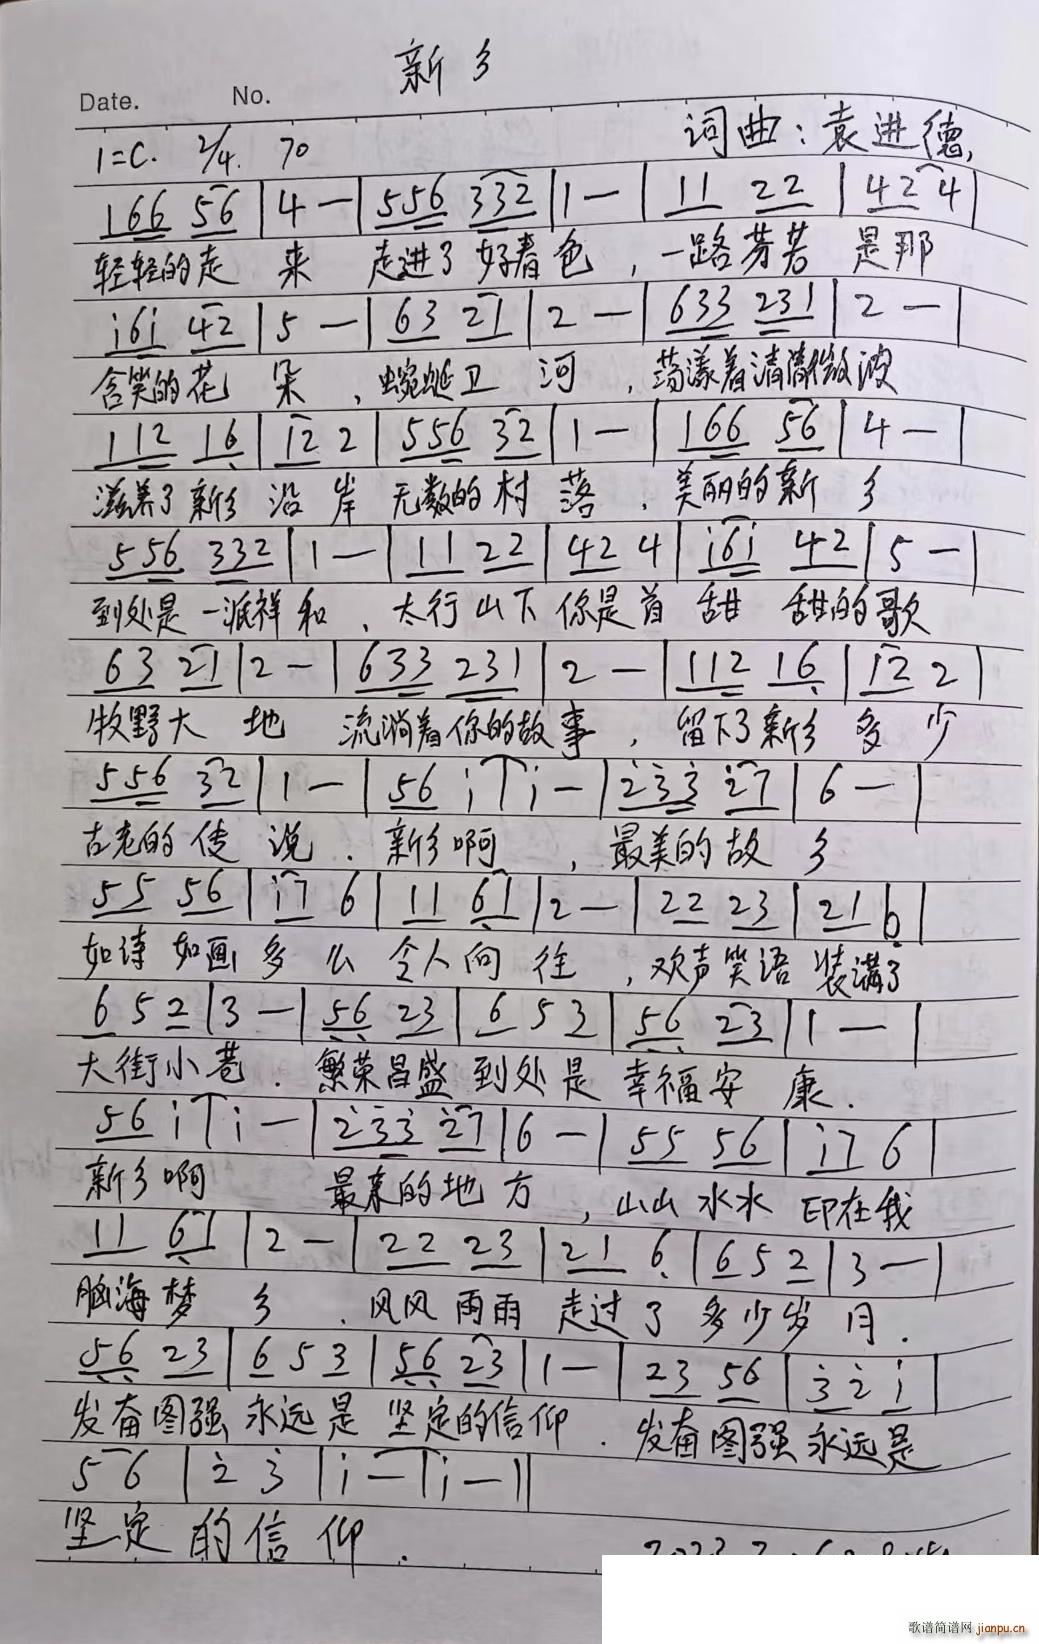 新乡
Date. No.
1=C. 2/4. 70 词曲：袁进德,
166 56 | 4 — | 556 332 | 1 — | 11 22 | 42 4 |
轻轻的走 来 走进了好春色，一路芬芳 是那
i6i 42 | 5 — | 63 21 | 2 — | 633 231 | 2 — |
含笑的花 朵，蜿蜒卫 河，荡漾着清澈微波
112 16 | 12 2 | 556 32 | 1 — | 166 56 | 4 — |
滋养了新乡 沿 岸 无数的村 落，美丽的新 乡
556 332 | 1 — | 11 22 | 42 4 | i6i 42 | 5 — |
到处是一派祥和，太行山下你是首 甜 甜的歌
63 21 | 2 — | 633 231 | 2 — | 112 16 | 12 2 |
牧野大 地 流淌着你的故事，留下了新乡 多 少
556 32 | 1 — | 56 i | i — | 233 27 | 6 — |
古老的传 说．新乡啊，最美的故 乡
55 56 | i7 6 | 11 61 | 2 — | 22 23 | 21 6 |
如诗 如画 多 么 令人向 往，欢声笑语 装满了
6 5 2 | 3 — | 56 23 | 6 5 3 | 56 23 | 1 — |
大街小巷．繁荣昌盛 到处是 幸福安 康．
56 i | i — | 233 27 | 6 — | 55 56 | i7 6 |
新乡啊 最亲的地 方，山山水水 印在我
11 61 | 2 — | 22 23 | 21 6 | 6 5 2 | 3 — |
脑海梦 乡．风风雨雨 走过了多少岁月．
56 23 | 6 5 3 | 56 23 | 1 — | 23 56 | 3 2 i |
发奋图强 永远是 坚定的信仰．发奋图强永远是
5 6 | 2 3 | i — | i — ||
坚定 的信 仰．
歌谱简谱网 jianpu.cn